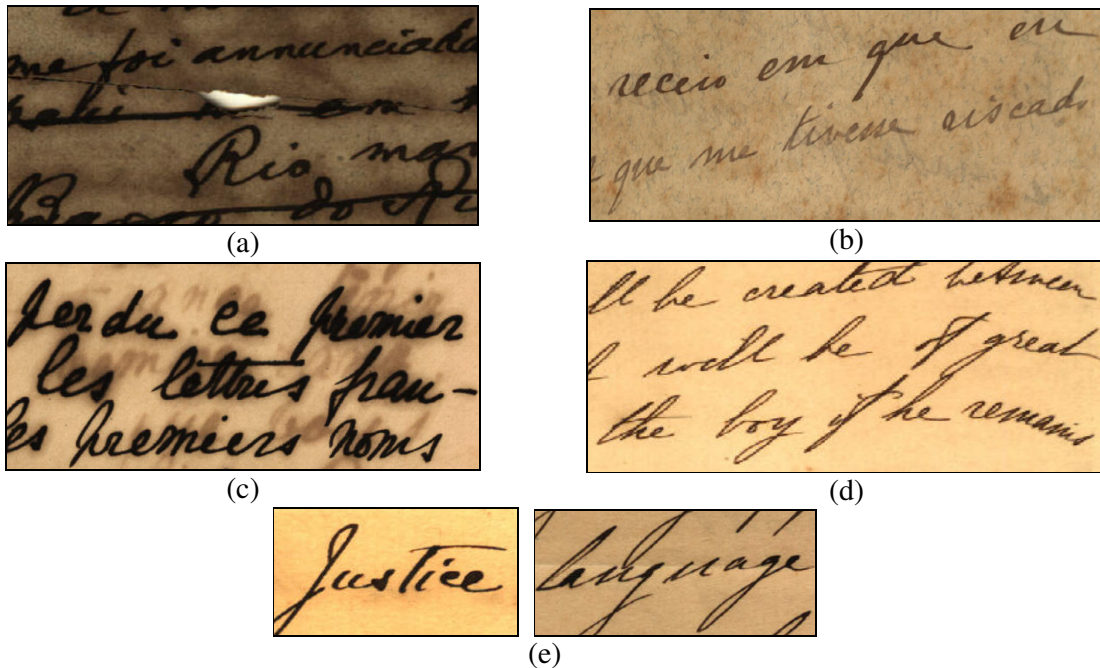 me foi annunciada
em
Rio mar
do
(a)
receio em que eu
que me tivesse riscado
(b)
perdu ce premier
les lettres fran-
es premiers noms
(c)
ll be created between
well be of great
the boy if he remains
(d)
Justice
language
(e)